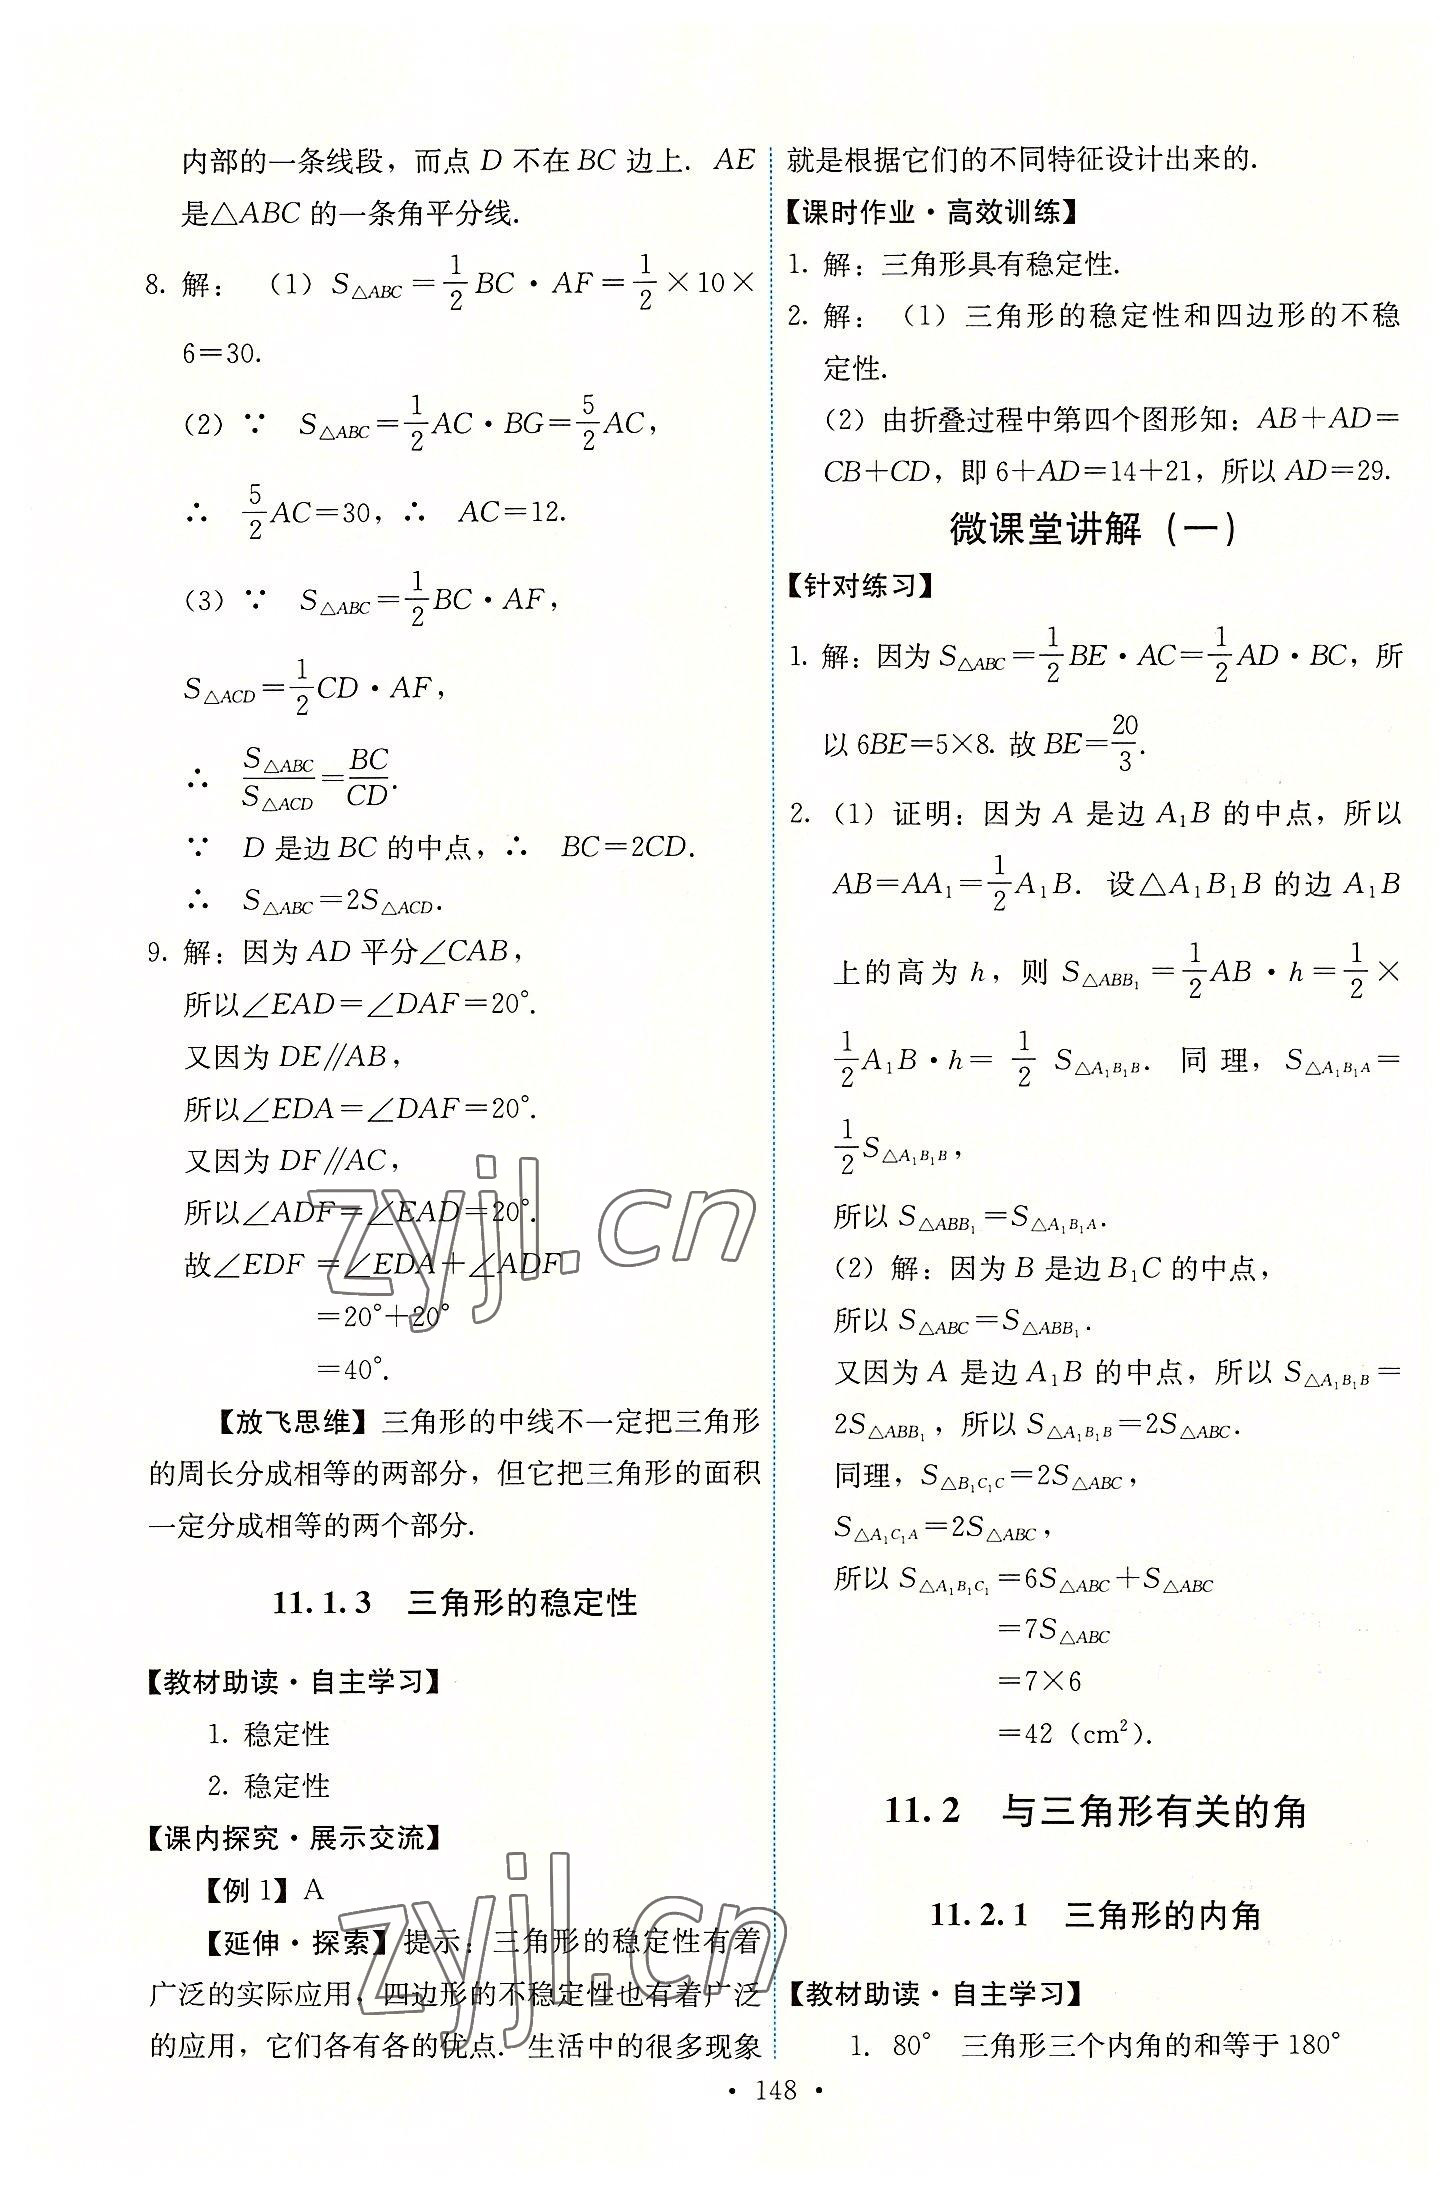 内部的一条线段，而点 D 不在 BC 边上. AE
是△ABC 的一条角平分线.
8. 解：（1）S△ABC＝1/2 BC・AF＝1/2×10×
6＝30.
（2）∵ S△ABC＝1/2 AC・BG＝5/2 AC，
∴ 5/2 AC＝30，∴ AC＝12.
（3）∵ S△ABC＝1/2 BC・AF，
S△ACD＝1/2 CD・AF，
∴ S△ABC/S△ACD＝BC/CD.
∵ D 是边 BC 的中点，∴ BC＝2CD.
∴ S△ABC＝2S△ACD.
9. 解：因为 AD 平分∠CAB，
所以∠EAD＝∠DAF＝20°.
又因为 DE∥AB，
所以∠EDA＝∠DAF＝20°.
又因为 DF∥AC，
所以∠ADF＝∠EAD＝20°.
故∠EDF ＝∠EDA＋∠ADF
＝20°＋20°
＝40°.
【放飞思维】三角形的中线不一定把三角形
的周长分成相等的两部分，但它把三角形的面积
一定分成相等的两个部分.
11.1.3 三角形的稳定性
【教材助读・自主学习】
1. 稳定性
2. 稳定性
【课内探究・展示交流】
【例 1】A
【延伸・探索】提示：三角形的稳定性有着
广泛的实际应用，四边形的不稳定性也有着广泛
的应用，它们各有各的优点. 生活中的很多现象
就是根据它们的不同特征设计出来的.
【课时作业・高效训练】
1. 解：三角形具有稳定性.
2. 解：（1）三角形的稳定性和四边形的不稳
定性.
（2）由折叠过程中第四个图形知：AB＋AD＝
CB＋CD，即 6＋AD＝14＋21，所以 AD＝29.
微课堂讲解（一）
【针对练习】
1. 解：因为 S△ABC＝1/2 BE・AC＝1/2 AD・BC，所
以 6BE＝5×8. 故 BE＝20/3.
2.（1）证明：因为 A 是边 A₁B 的中点，所以
AB＝AA₁＝1/2 A₁B. 设△A₁B₁B 的边 A₁B
上的高为 h，则 S△ABB₁＝1/2 AB・h＝1/2×
1/2 A₁B・h＝1/2 S△A₁B₁B. 同理，S△A₁B₁A＝
1/2 S△A₁B₁B，
所以 S△ABB₁＝S△A₁B₁A.
（2）解：因为 B 是边 B₁C 的中点，
所以 S△ABC＝S△ABB₁.
又因为 A 是边 A₁B 的中点，所以 S△A₁B₁B＝
2S△ABB₁，所以 S△A₁B₁B＝2S△ABC.
同理，S△B₁C₁C＝2S△ABC，
S△A₁C₁A＝2S△ABC，
所以 S△A₁B₁C₁＝6S△ABC＋S△ABC
＝7S△ABC
＝7×6
＝42（cm²）.
11.2 与三角形有关的角
11.2.1 三角形的内角
【教材助读・自主学习】
1. 80° 三角形三个内角的和等于 180°
・148・
zyjl.cn
zyjl.cn